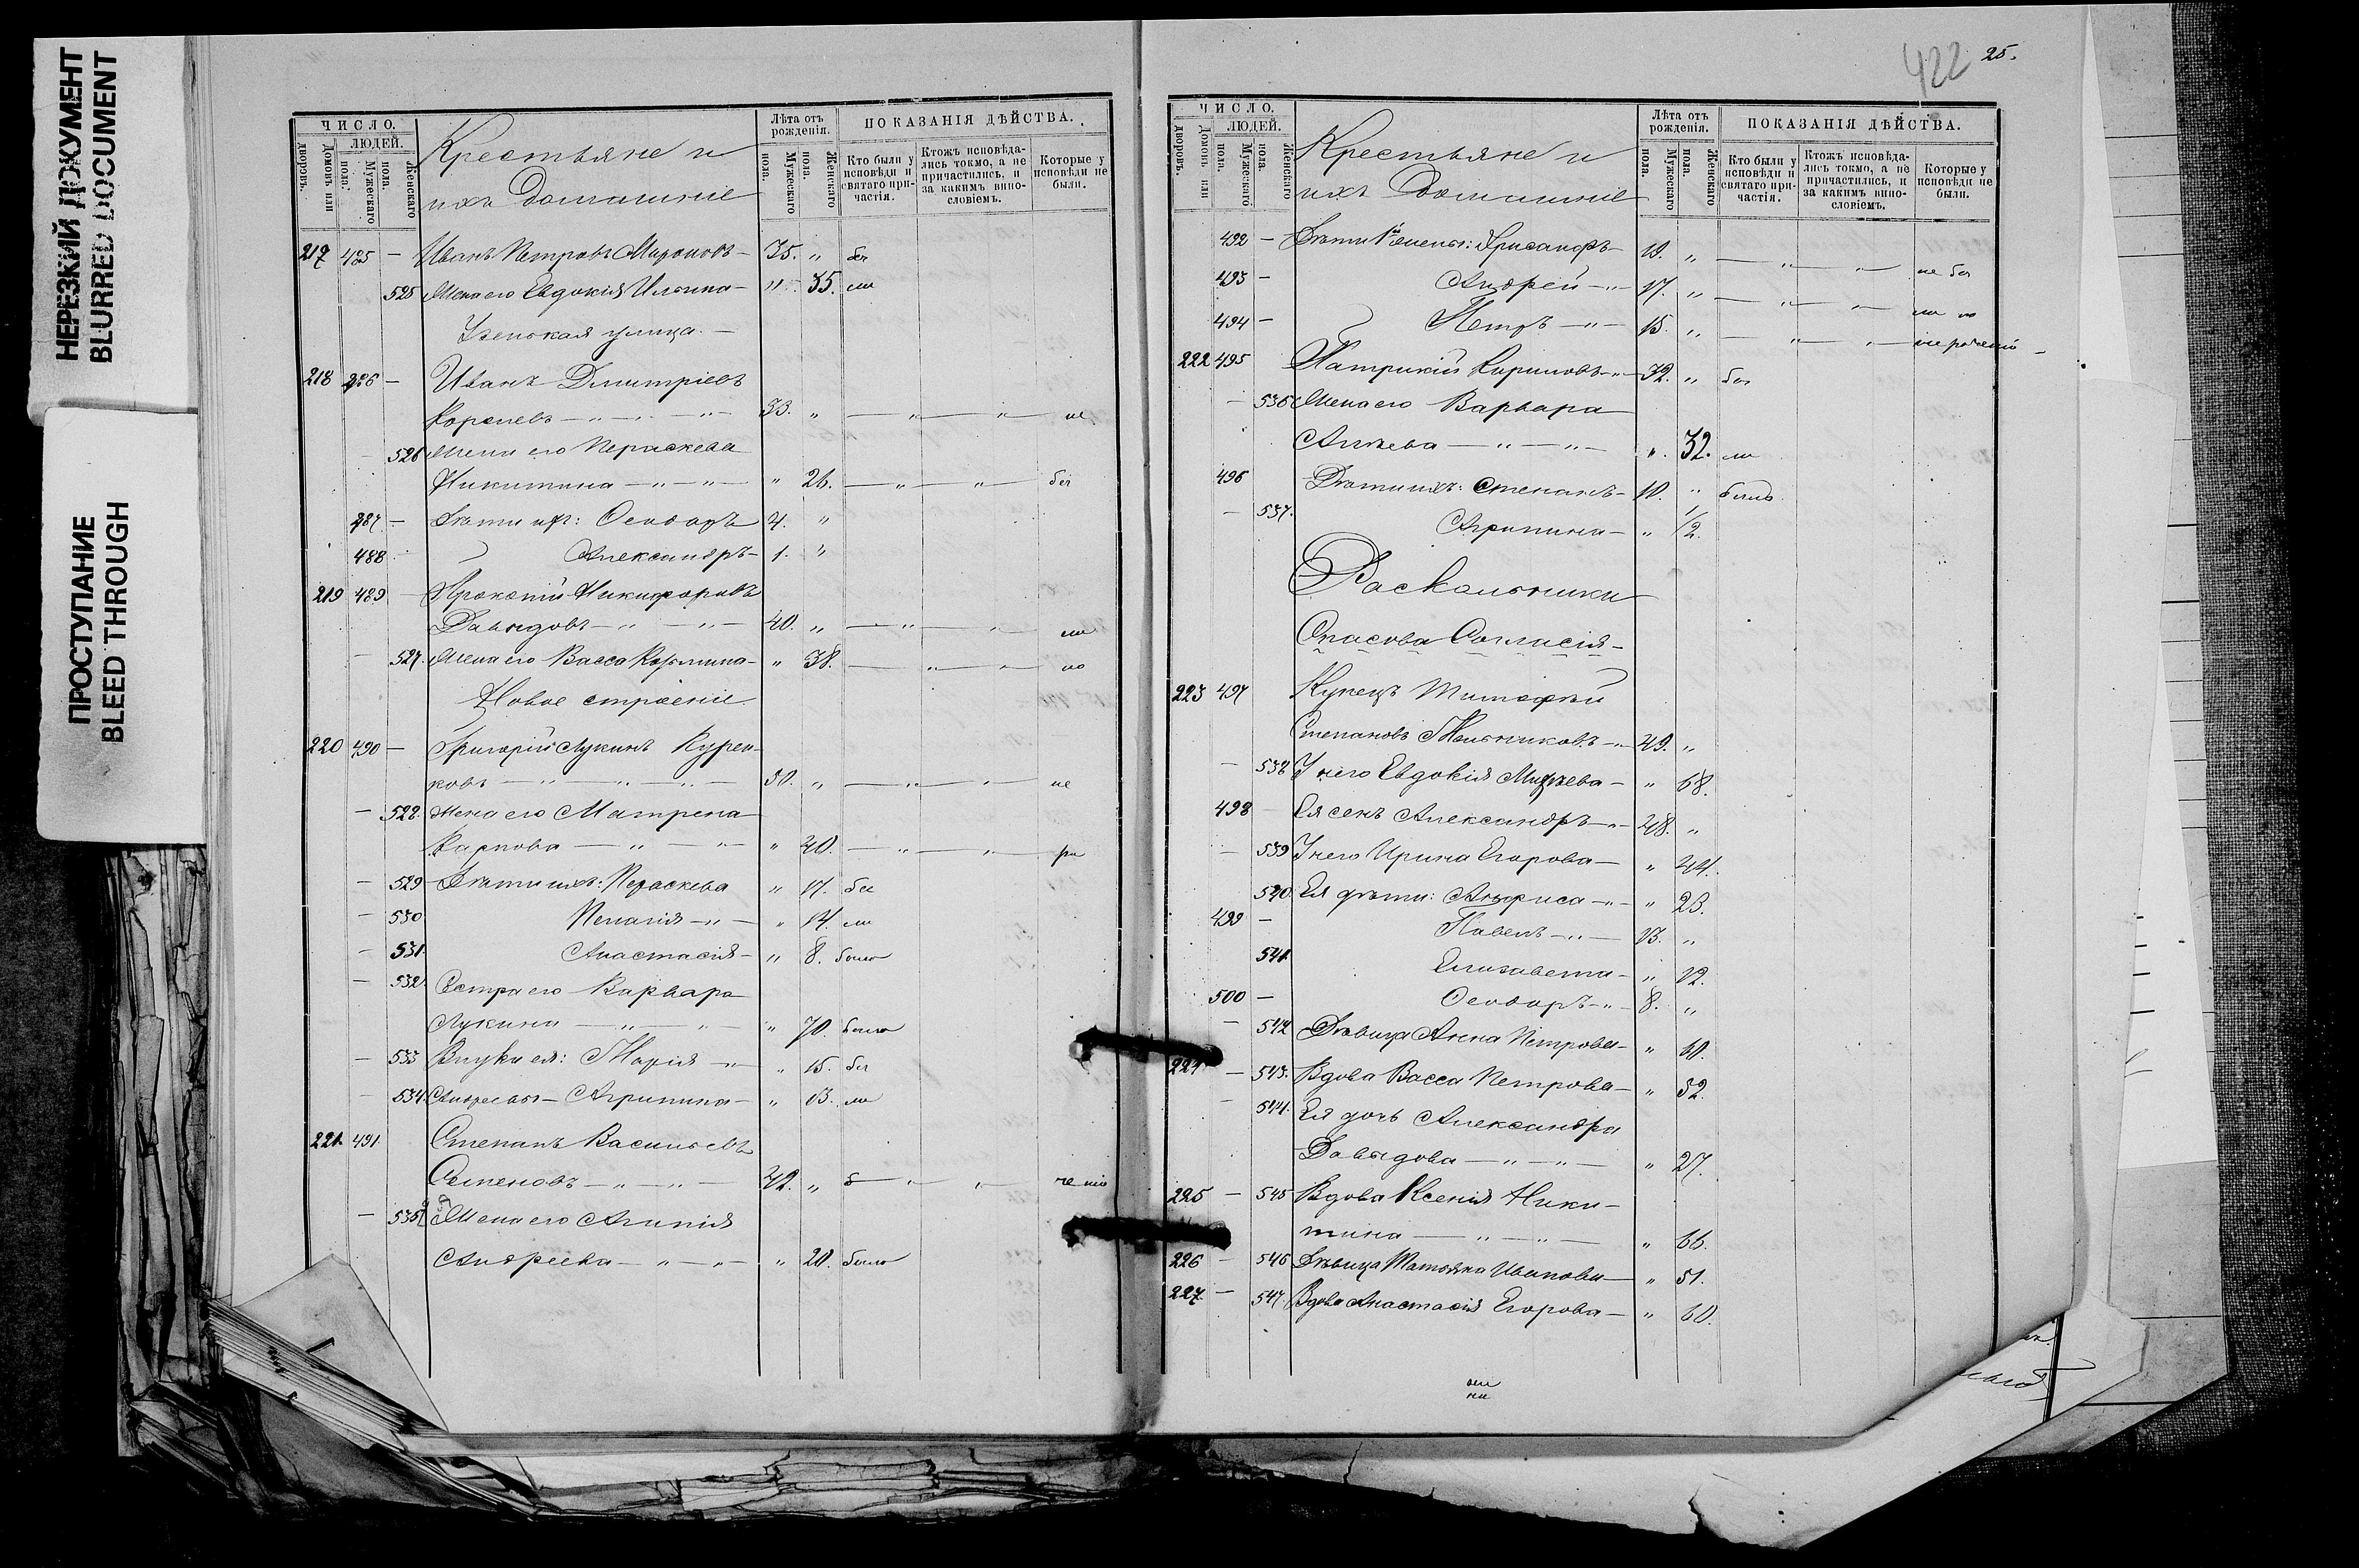 НЕРЕЗКИЙ ДОКУМЕНТ
BLURRED DOCUMENT
ПРОСТУПАНИЕ
BLEED THROUGH
ЧИСЛО.
ЛЮДЕЙ.
Домовъ или дворовъ.
Мужескаго пола.
Женскаго пола.
Крестьяне и
ихъ Домашніе
Лѣта отъ рожденія.
Мужескаго пола.
Женскаго пола.
ПОКАЗАНІЯ ДѢЙСТВА.
Кто были у исповѣди и святаго причастія.
Ктожъ исповѣдались токмо, а не причастились, и за какимъ винословіемъ.
Которые у исповѣди не были.
217 485 – Иванъ Петровъ Мироновъ – 35. „
525 Жена его Евдокія Ильина – „ 35.
Узенькая улица. –
218 486 – Иванъ Дмитріевъ
Королевъ – „ – „ – 33. „ – „ – „ – не
526 Жена его Параскева
Никитина – „ – „ – „ 26. – „ – „ –
487 – Дѣти ихъ: Ѳеодоръ 4. „
488 Александръ – 1. „
219 489 – Никифоровъ
Давыдовъ – „ – „ – 40. „ – „ – „ –
– 527. Жена его Васса – „ 38. – „ – „ –
Новое строеніе
220 490 – Григорій Лукинъ Курен-
ковъ – „ – „ – „ – 50. „ – „ – „ – не
– 528. Жена его Матрена
Карпова – „ – „ – „ 40. – „ – „ –
– 529 Дѣти ихъ: Параскева „ 17.
– 530 Пелагія – „ – „ 14.
– 531. Анастасія – „ 8. было
– 532. Сестра его Варвара
Лукина – „ – „ – „ 70. было
– 533 Внуки ея: Марія – „ – „ 15.
– 534. Андреевы – Агрипина – „ 13.
221. 491. Степанъ Васильевъ
Семеновъ – „ – „ – 42. „
– 535 Жена его Агапія
Андреева – „ – „ – „ 20. было
422 25.
ЧИСЛО.
ЛЮДЕЙ.
Домовъ или дворовъ.
Мужескаго пола.
Женскаго пола.
Крестьяне и
ихъ Домашніе
Лѣта отъ рожденія.
Мужескаго пола.
Женскаго пола.
ПОКАЗАНІЯ ДѢЙСТВА.
Кто были у исповѣди и святаго причастія.
Ктожъ исповѣдались токмо, а не причастились, и за какимъ винословіемъ.
Которые у исповѣди не были.
492 – Дѣти „ – „ –
493 – Андрей – „ – 17. „ – „ – „ –
494 – Петръ – „ – 15. „ – „ – „ –
222 495 Патрикій Кириловъ – „ – 32. „
– 536 Жена его Варвара
– „ – „ – „ 32.
496 Дѣти ихъ: Степанъ – 10. „ было
– 537. Агрипина – „ 1/2.
Раскольники
Спасова Согласія –
223 497 Купецъ Тимофей
Степановъ Мельниковъ – „ – 49. „
– 538 У него Евдокія – „ 68.
498 Ея сынъ Александръ – „ – 48. „
– 539 У него Ирина Егорова – „ 44.
540 Ея дѣти: Анфиса – „ – „ 23.
499 – Павелъ – „ – 13. „
541. Елизавета – „ 12.
500 – Ѳеодоръ – „ – 8. „
– 542 Дѣвица Анна Петрова – „ 60.
224 – 543. Вдова Васса Петрова – „ 52.
– 544. Ея дочь Александра
Давыдова – „ – „ – „ 27.
225 – 545 Вдова Ксенія Ники-
тина – „ – „ – „ 66.
226 – 546 Дѣвица Татьяна Иванова – „ 51.
227. – 547. Вдова Анастасія Егорова – „ 60.